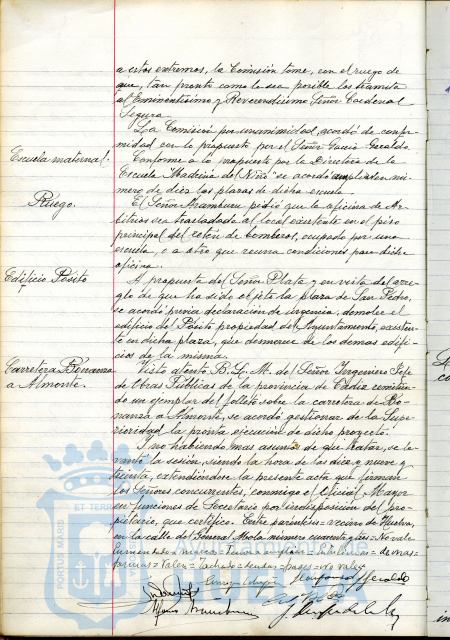 a estos extremos, la Comisión tome, con el ruego de
que, tan pronto como le sea posible los tramite
al Eminentísimo y Reverendísimo Señor Cardenal
Segura.
La Comisión por unanimidad, acordó de confor-
midad con lo propuesto por el Señor García Geraldo.
Escuela maternal.
Conforme a lo propuesto por la Directora de la
Escuela Madrina del Niño se acordó ampliar en nú-
mero de diez las plazas de dicha escuela.
Ruego.
El Señor Aramburu pidió que la oficina de Ar-
bitrios sea trasladada al local existente en el piso
principal del retén de bomberos, ocupado por una
escuela, o a otro que reuna condiciones para dicha
oficina.
Edificio Pósito
A propuesta del Señor Plata y en vista del arre-
glo de que ha sido objeto la plaza de San Pedro,
se acordó previa declaración de urgencia, demoler el
edificio del Pósito propiedad del Ayuntamiento, existen-
te en dicha plaza, que desmerece de los demas edifi-
cios de la misma.
Carretera Bonanza
a Almonte.
Visto atento B. L. M. del Señor Ingeniero Jefe
de Obras Públicas de la provincia de Cádiz remitien-
do un ejemplar del folleto sobre la carretera de Bo-
nanza a Almonte, se acordó gestionar de la Supe-
rioridad la pronta ejecución de dicho proyecto.
Y no habiendo mas asuntos de que tratar, se le-
vantó la sesión, siendo la hora de las diez y nueve y
treinta, extendiendose la presente acta que firman
los Señores concurrentes, conmigo el Oficial Mayor
en funciones de Secretario por indisposición del pro-
pietario, que certifico. Entre parentesis = vecino de Huelva,
en la calle del General Mola número cuarenta y seis = No vale
= Tachado =
= No vale
PORTUS MARIS ET TERRAE